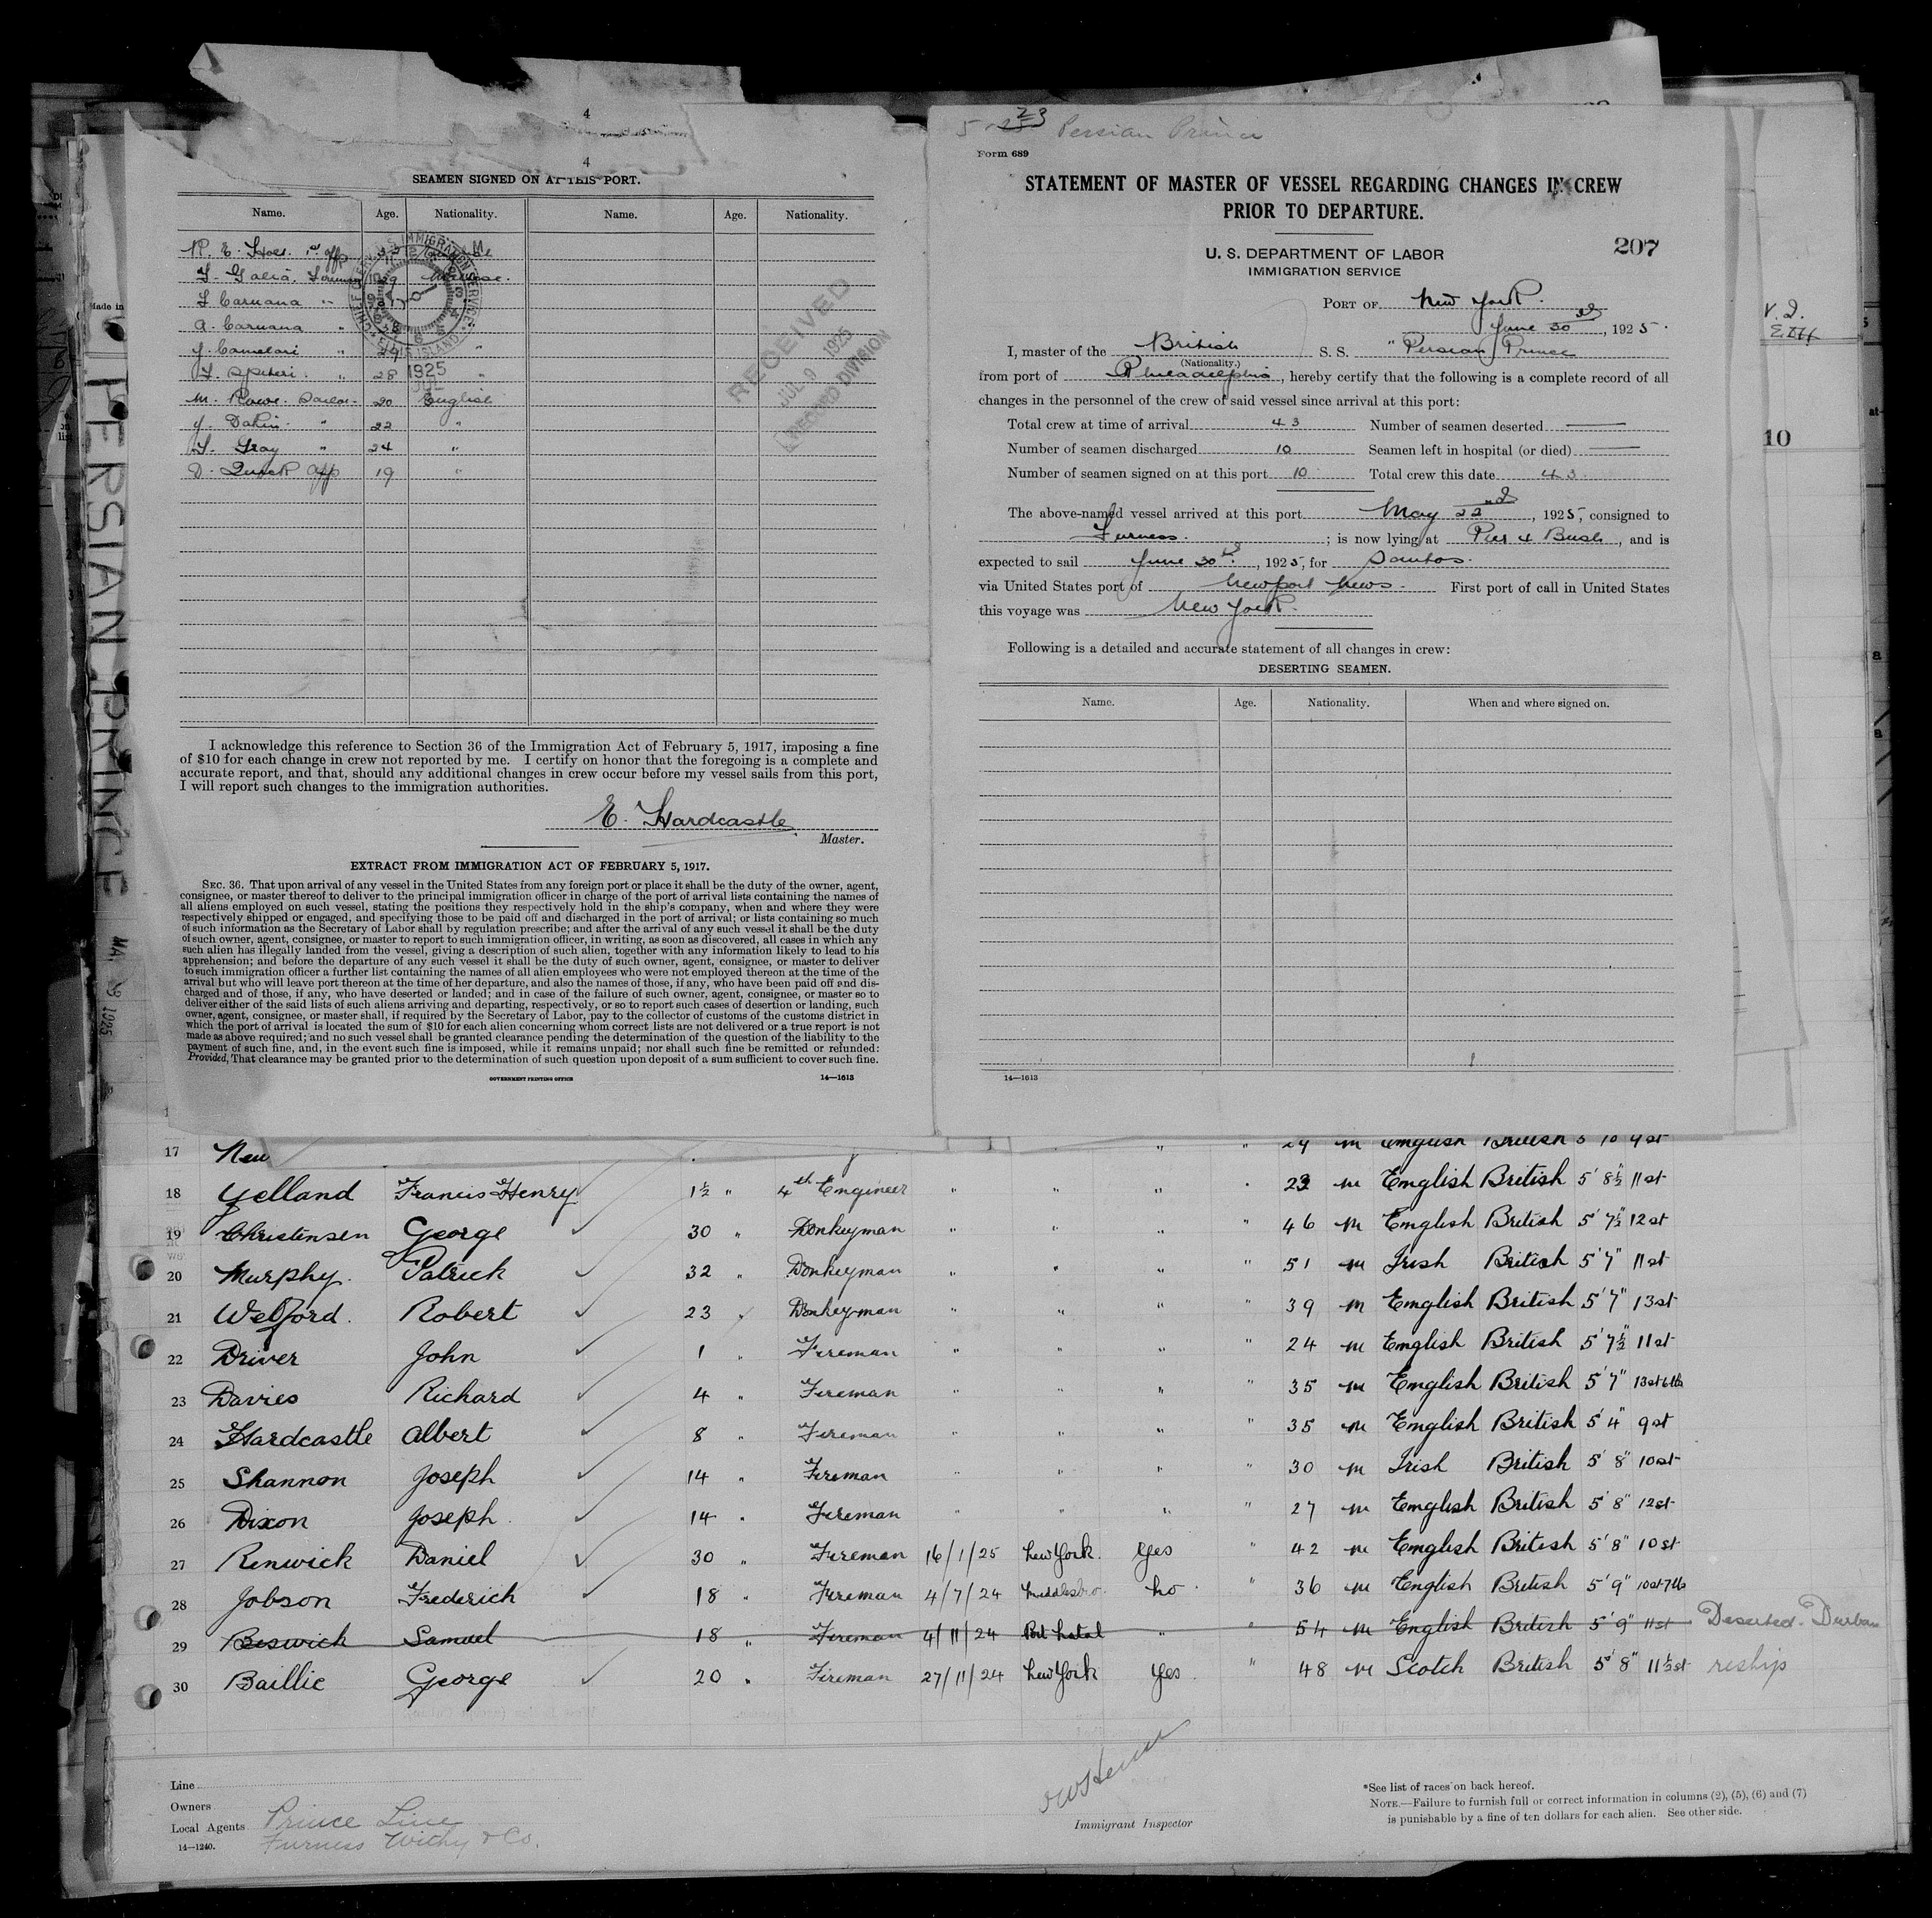 4
4
SEAMEN SIGNED ON AT THIS PORT.
Name. Age. Nationality. Name. Age. Nationality.
R. E.
F. Galea. Fireman
F Caruana "
a. Caruana "
J. Camelari " 24 "
F. Spiteri. " 28 "
M. Rowe. Sailor. 20 English
J. Dakin. " 22 "
F. Gray " 24 "
D. Quick app 19 "
U.S. IMMIGRATION SERVICE
ELLIS ISLAND
1925
RECEIVED
JUL 9 1925
RECORD DIVISION
I acknowledge this reference to Section 36 of the Immigration Act of February 5, 1917, imposing a fine
of $10 for each change in crew not reported by me. I certify on honor that the foregoing is a complete and
accurate report, and that, should any additional changes in crew occur before my vessel sails from this port,
I will report such changes to the immigration authorities.
E. Hardcastle
Master.
EXTRACT FROM IMMIGRATION ACT OF FEBRUARY 5, 1917.
SEC. 36. That upon arrival of any vessel in the United States from any foreign port or place it shall be the duty of the owner, agent,
consignee, or master thereof to deliver to the principal immigration officer in charge of the port of arrival lists containing the names of
all aliens employed on such vessel, stating the positions they respectively hold in the ship's company, when and where they were
respectively shipped or engaged, and specifying those to be paid off and discharged in the port of arrival; or lists containing so much
of such information as the Secretary of Labor shall by regulation prescribe; and after the arrival of any such vessel it shall be the duty
of such owner, agent, consignee, or master to report to such immigration officer, in writing, as soon as discovered, all cases in which any
such alien has illegally landed from the vessel, giving a description of such alien, together with any information likely to lead to his
apprehension; and before the departure of any such vessel it shall be the duty of such owner, agent, consignee, or master to deliver
to such immigration officer a further list containing the names of all alien employees who were not employed thereon at the time of the
arrival but who will leave port thereon at the time of her departure, and also the names of those, if any, who have been paid off and dis-
charged and of those, if any, who have deserted or landed; and in case of the failure of such owner, agent, consignee, or master so to
deliver either of the said lists of such aliens arriving and departing, respectively, or so to report such cases of desertion or landing, such
owner, agent, consignee, or master shall, if required by the Secretary of Labor, pay to the collector of customs of the customs district in
which the port of arrival is located the sum of $10 for each alien concerning whom correct lists are not delivered or a true report is not
made as above required; and no such vessel shall be granted clearance pending the determination of the question of the liability to the
payment of such fine, and, in the event such fine is imposed, while it remains unpaid; nor shall such fine be remitted or refunded:
Provided, That clearance may be granted prior to the determination of such question upon deposit of a sum sufficient to cover such fine.
GOVERNMENT PRINTING OFFICE 14—1613
Persian Prince
Form 689
STATEMENT OF MASTER OF VESSEL REGARDING CHANGES IN CREW
PRIOR TO DEPARTURE.
207
U. S. DEPARTMENT OF LABOR
IMMIGRATION SERVICE
PORT OF New York.
June 30, 1925.
I, master of the British S. S. "Persian Prince
(Nationality.)
from port of Philadelphia, hereby certify that the following is a complete record of all
changes in the personnel of the crew of said vessel since arrival at this port:
Total crew at time of arrival 43 Number of seamen deserted —
Number of seamen discharged 10 Seamen left in hospital (or died) —
Number of seamen signed on at this port 10 Total crew this date 43
The above-named vessel arrived at this port May 22nd, 1925, consigned to
Furness. ; is now lying at Pier 4 Bush, and is
expected to sail June 30, 1925, for Santos.
via United States port of Newport News. First port of call in United States
this voyage was New York.
Following is a detailed and accurate statement of all changes in crew:
DESERTING SEAMEN.
Name. Age. Nationality. When and where signed on.
14—1613
10
Made in
PERSIAN PRINCE
1925
17 " " 29 m English British 5 10 9st
18 Yelland Francis Henry 1½ " 4th Engineer " " " " 23 m English British 5' 8½" 11st
19 Christensen George 30 " Donkeyman " " " 46 m English British 5' 7½" 12st
20 Murphy. Patrick 32 " Donkeyman " " " " 51 m Irish British 5' 7" 11st
21 Welford. Robert 23 " Donkeyman " " " " 39 m English British 5' 7" 13st
22 Driver John 1 " Fireman " " " " 24 m English British 5' 7½" 11st
23 Davies Richard 4 " Fireman " " " " 35 m English British 5' 7" 13st 6lbs
24 Hardcastle Albert 8 " Fireman " " " " 35 m English British 5' 4" 9st
25 Shannon Joseph 14 " Fireman " " " " 30 m Irish British 5' 8" 10st
26 Dixon Joseph. 14 " Fireman " " " " 27 m English British 5' 8" 12st
27 Renwick Daniel 30 " Fireman 16/1/25 New York. Yes " 42 m English British 5' 8" 10st
28 Jobson Frederich 18 " Fireman 4/7/24 Middlesbro. No " 36 m English British 5' 9" 10st 7lb
29 Beswick Samuel 18 " Fireman 4/11/24 Port Natal " " 54 m English British 5' 9" 11st Deserted. Durban
30 Baillie George 20 " Fireman 27/11/24 New York Yes " 48 m Scotch British 5' 8" 11½st reship
Line
Owners
Local Agents Prince Line
Furness Withy & Co.
14—1240.
Immigrant Inspector
*See list of races on back hereof.
NOTE.—Failure to furnish full or correct information in columns (2), (5), (6) and (7)
is punishable by a fine of ten dollars for each alien. See other side.